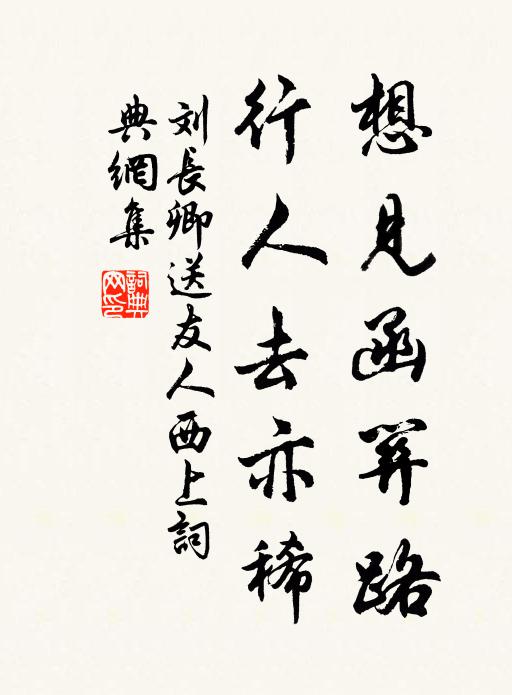 想見函關路
行人去亦稀
刘長卿送友人西上詞
典網集
詞典网印